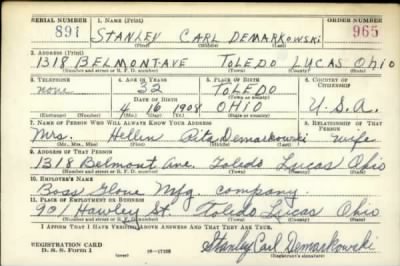 SERIAL NUMBER 1. NAME (Print) ORDER NUMBER
891 STANLEY CARL DEMARKOWSKI 965
(First) (Middle) (Last)
2. ADDRESS (Print)
1318 BELMONT AVE TOLEDO LUCAS OHIO
(Number and street or R. F. D. number) (Town) (County) (State)
3. TELEPHONE 4. AGE IN YEARS 5. PLACE OF BIRTH 6. COUNTRY OF CITIZENSHIP
none 32 TOLEDO
DATE OF BIRTH (Town or county)
4 16 1908 OHIO U.S.A.
(Exchange) (Number) (Mo.) (Day) (Yr.) (State or country)
7. NAME OF PERSON WHO WILL ALWAYS KNOW YOUR ADDRESS 8. RELATIONSHIP OF THAT PERSON
Mrs. Hellen Rita Demarkowski wife
(Mr., Mrs., Miss) (First) (Middle) (Last)
9. ADDRESS OF THAT PERSON
1318 Belmont Ave. Toledo Lucas Ohio
(Number and street or R. F. D. number) (Town) (County) (State)
10. EMPLOYER'S NAME
Boss Glove Mfg. Company.
11. PLACE OF EMPLOYMENT OR BUSINESS
901 Hawley St. Toledo Lucas Ohio
(Number and street or R. F. D. number) (Town) (County) (State)
I AFFIRM THAT I HAVE VERIFIED ABOVE ANSWERS AND THAT THEY ARE TRUE.
REGISTRATION CARD
D. S. S. Form 1 Stanley Carl Demarkowski
(Registrant's signature)